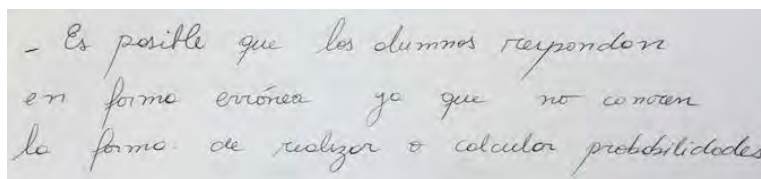 - Es posible que los alumnos respondan
en forma errónea ya que no conocen
la forma de realizar o calcular probabilidades